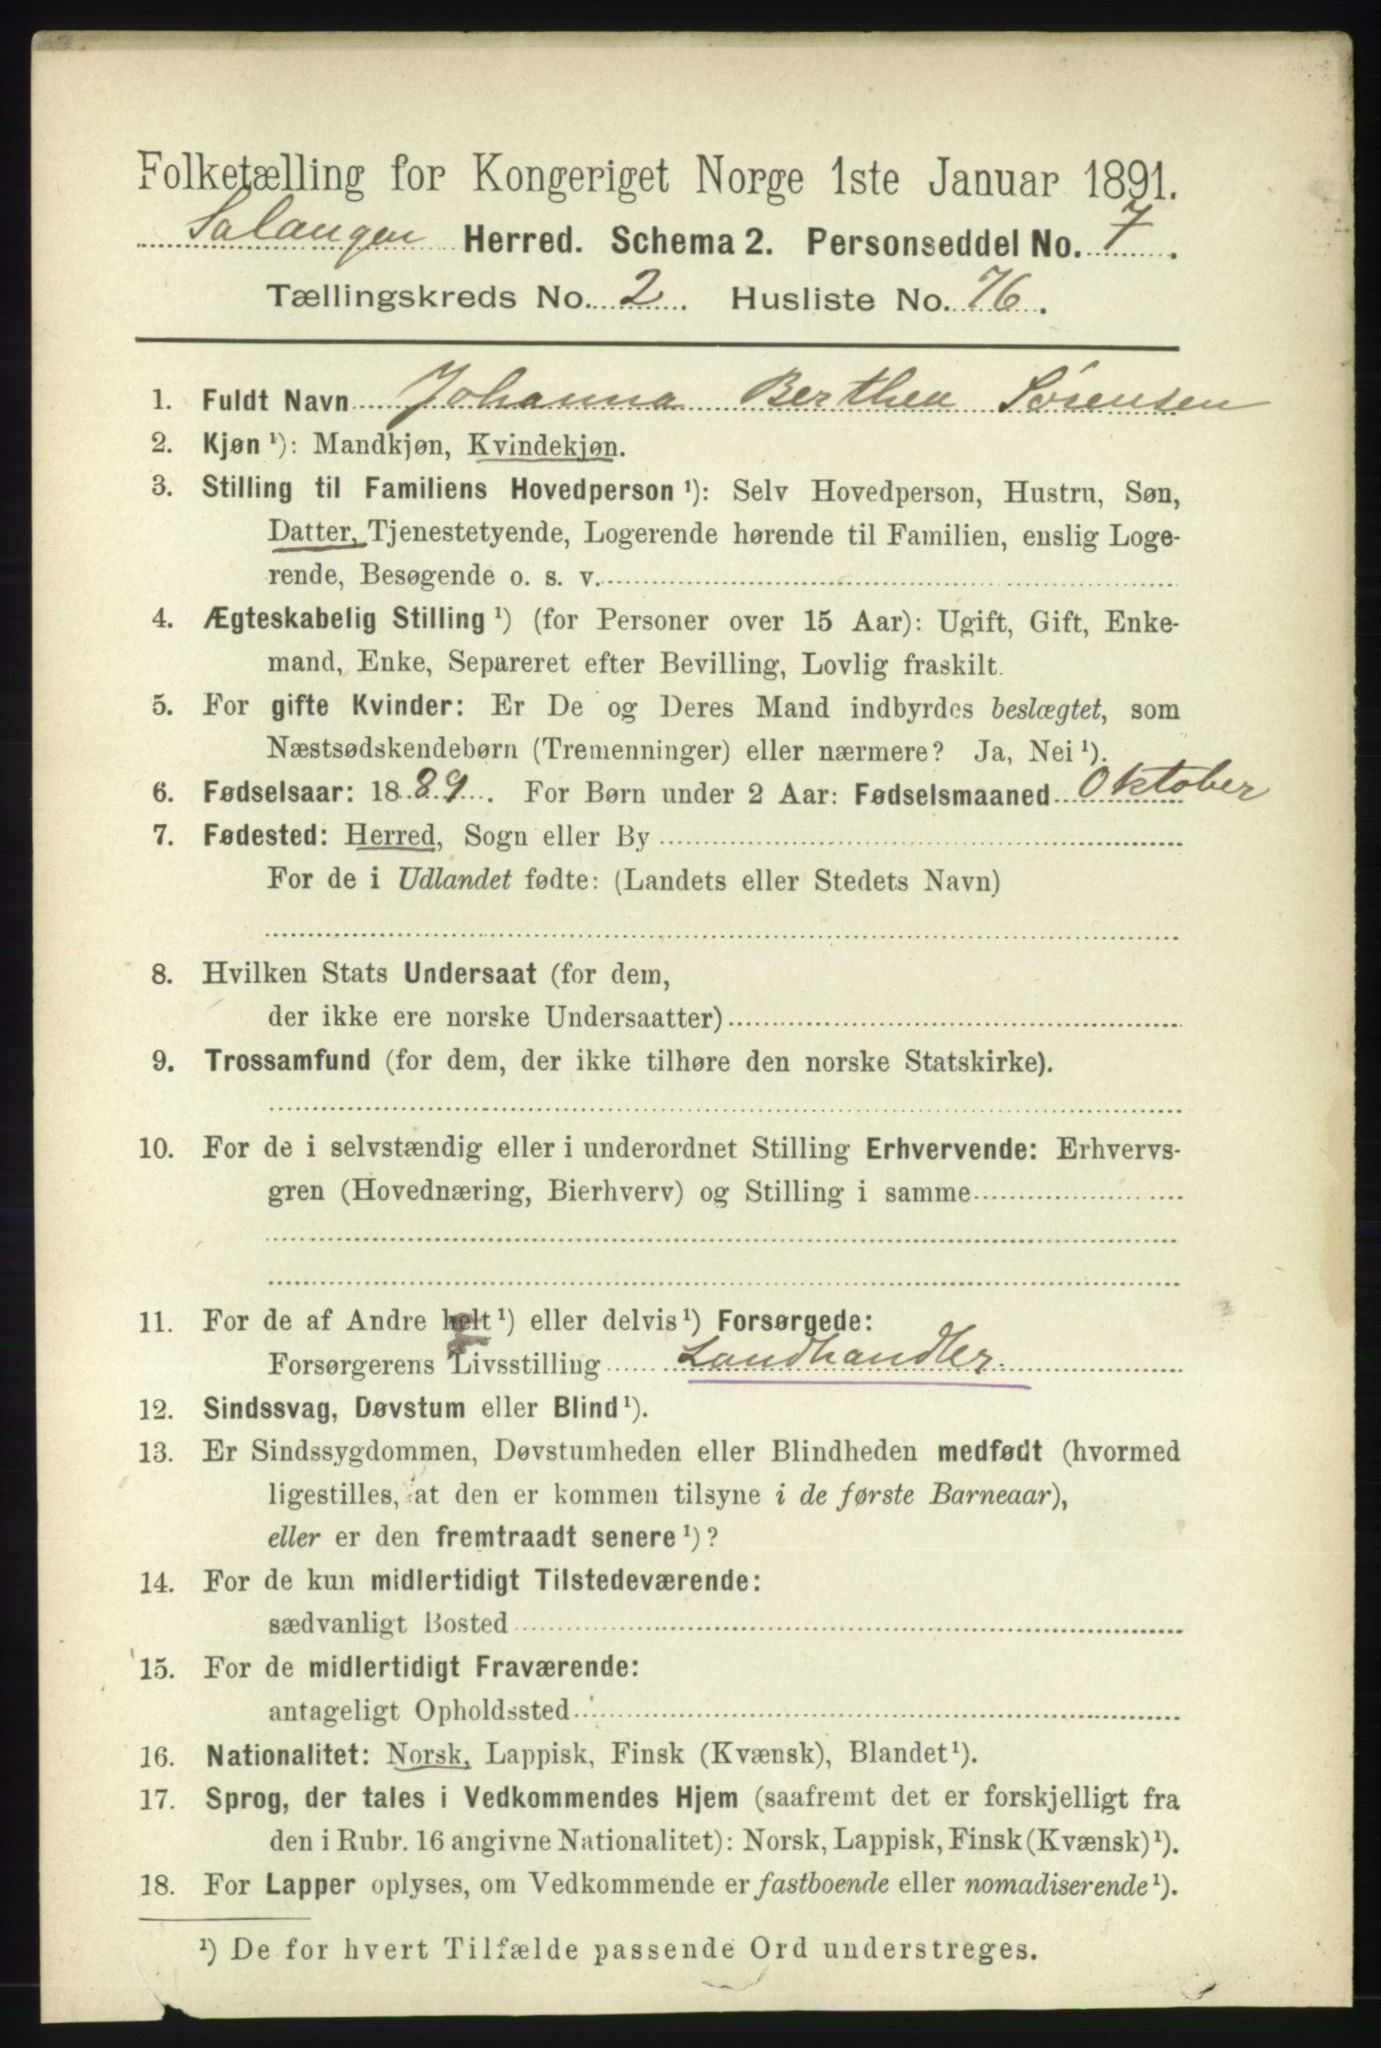 Folketælling for Kongeriget Norge 1ste Januar 1891.
Salangen Herred. Schema 2. Personseddel No. 7.
Tællingskreds No. 2. Husliste No. 76.
1. Fuldt Navn Johanna Berthea Sørensen
2. Kjøn ¹): Mandkjøn, Kvindekjøn.
3. Stilling til Familiens Hovedperson ¹): Selv Hovedperson, Hustru, Søn,
Datter, Tjenestetyende, Logerende hørende til Familien, enslig Loge-
rende, Besøgende o. s. v.
4. Ægteskabelig Stilling ¹) (for Personer over 15 Aar): Ugift, Gift, Enke-
mand, Enke, Separeret efter Bevilling, Lovlig fraskilt.
5. For gifte Kvinder: Er De og Deres Mand indbyrdes beslægtet, som
Næstsødskendebørn (Tremenninger) eller nærmere? Ja, Nei ¹).
6. Fødselsaar: 1889. For Børn under 2 Aar: Fødselsmaaned Oktober
7. Fødested: Herred, Sogn eller By
For de i Udlandet fødte: (Landets eller Stedets Navn)
8. Hvilken Stats Undersaat (for dem,
der ikke ere norske Undersaatter)
9. Trossamfund (for dem, der ikke tilhøre den norske Statskirke).
10. For de i selvstændig eller i underordnet Stilling Erhvervende: Erhvervs-
gren (Hovednæring, Bierhverv) og Stilling i samme
11. For de af Andre helt ¹) eller delvis ¹) Forsørgede:
Forsørgerens Livsstilling Landhandler.
12. Sindssvag, Døvstum eller Blind ¹).
13. Er Sindssygdommen, Døvstumheden eller Blindheden medfødt (hvormed
ligestilles, at den er kommen tilsyne i de første Barneaar),
eller er den fremtraadt senere ¹)?
14. For de kun midlertidigt Tilstedeværende:
sædvanligt Bosted
15. For de midlertidigt Fraværende:
antageligt Opholdssted
16. Nationalitet: Norsk, Lappisk, Finsk (Kvænsk), Blandet ¹).
17. Sprog, der tales i Vedkommendes Hjem (saafremt det er forskjelligt fra
den i Rubr. 16 angivne Nationalitet): Norsk, Lappisk, Finsk (Kvænsk) ¹).
18. For Lapper oplyses, om Vedkommende er fastboende eller nomadiserende ¹).
¹) De for hvert Tilfælde passende Ord understreges.